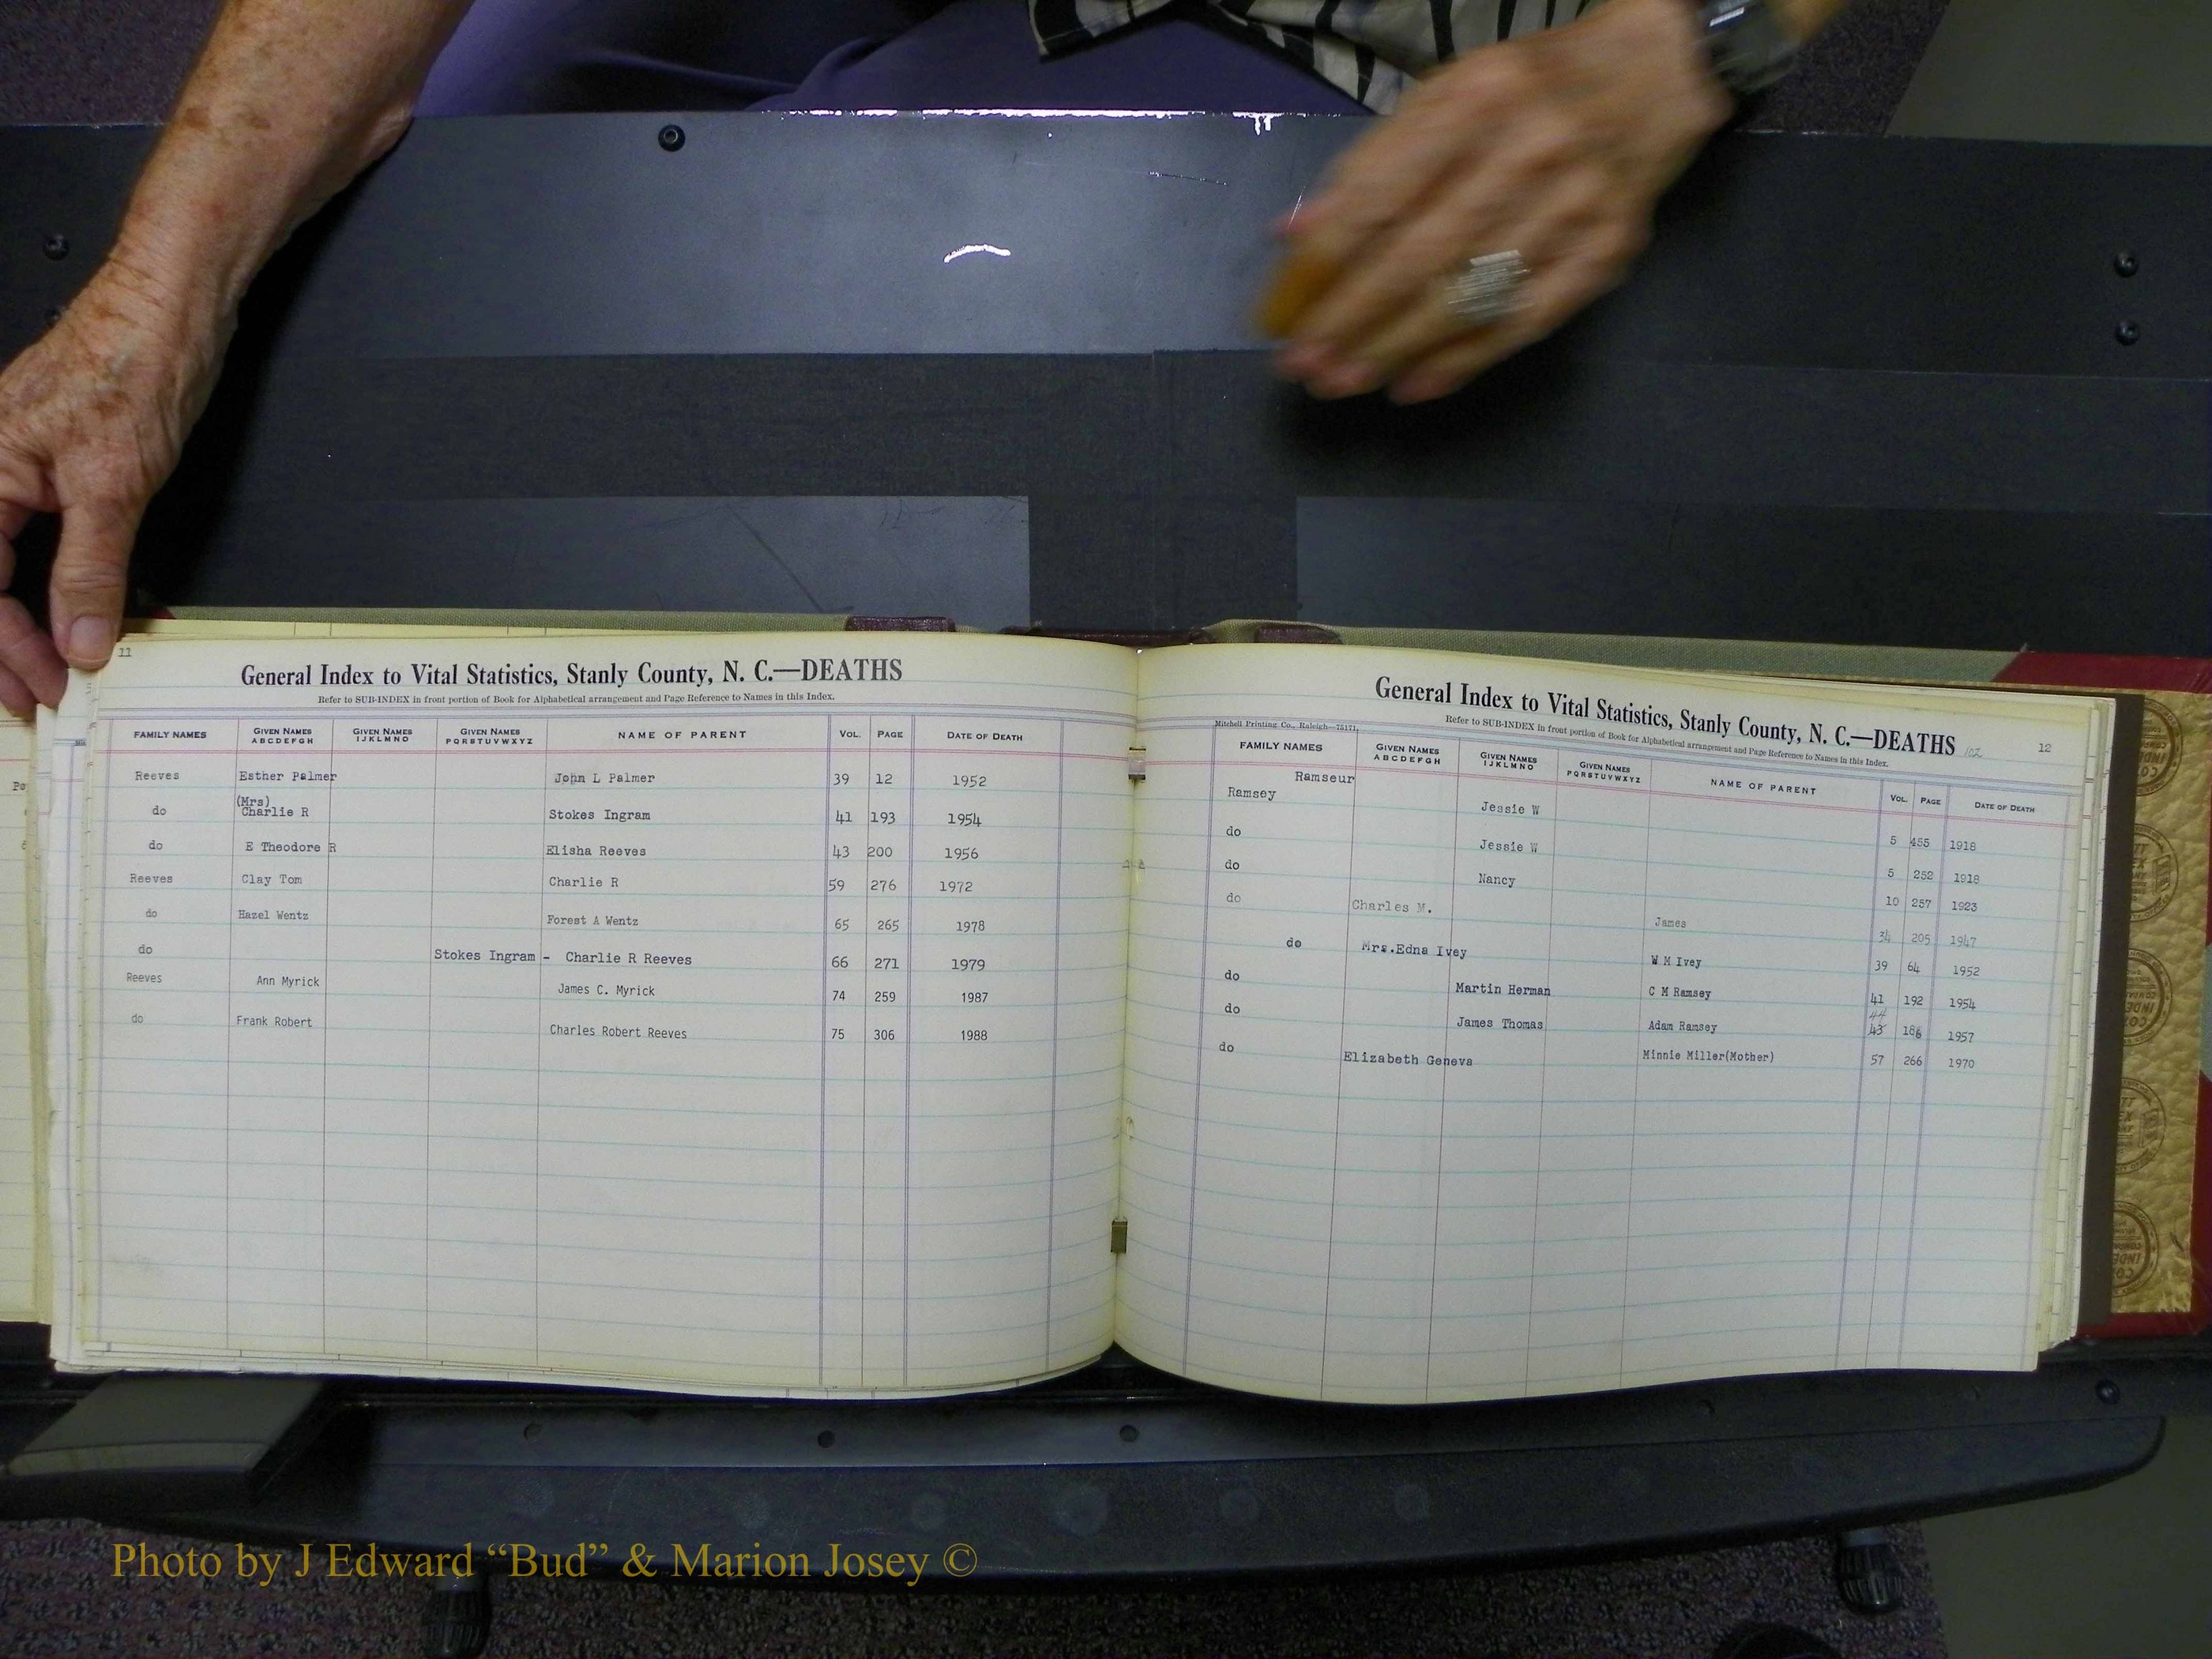 11
General Index to Vital Statistics, Stanly County, N. C.—DEATHS
Refer to SUB-INDEX in front portion of Book for Alphabetical arrangement and Page Reference to Names in this Index.
FAMILY NAMES GIVEN NAMES ABCDEFGH GIVEN NAMES IJKLMNO GIVEN NAMES PQRSTUVWXYZ NAME OF PARENT VOL. PAGE DATE OF DEATH
Reeves Esther Palmer John L Palmer 39 12 1952
(Mrs)
do Charlie R Stokes Ingram 41 193 1954
do E Theodore R Elisha Reeves 43 200 1956
Reeves Clay Tom Charlie R 59 276 1972
do Hazel Wentz Forest A Wentz 65 265 1978
do Stokes Ingram - Charlie R Reeves 66 271 1979
Reeves Ann Myrick James C. Myrick 74 259 1987
do Frank Robert Charles Robert Reeves 75 306 1988
General Index to Vital Statistics, Stanly County, N. C.—DEATHS 102 12
Mitchell Printing Co., Raleigh—75171
Refer to SUB-INDEX in front portion of Book for Alphabetical arrangement and Page Reference to Names in this Index.
FAMILY NAMES GIVEN NAMES ABCDEFGH GIVEN NAMES IJKLMNO GIVEN NAMES PQRSTUVWXYZ NAME OF PARENT VOL. PAGE DATE OF DEATH
Ramseur
Ramsey Jessie W 5 455 1918
do Jessie W 5 252 1918
do Nancy 10 257 1923
do Charles M. James 34 205 1947
do Mrs.Edna Ivey W M Ivey 39 64 1952
do Martin Herman C M Ramsey 41 192 1954
44
do James Thomas Adam Ramsey 43 186 1957
do Elizabeth Geneva Minnie Miller(Mother) 57 266 1970
Photo by J Edward “Bud” & Marion Josey ©